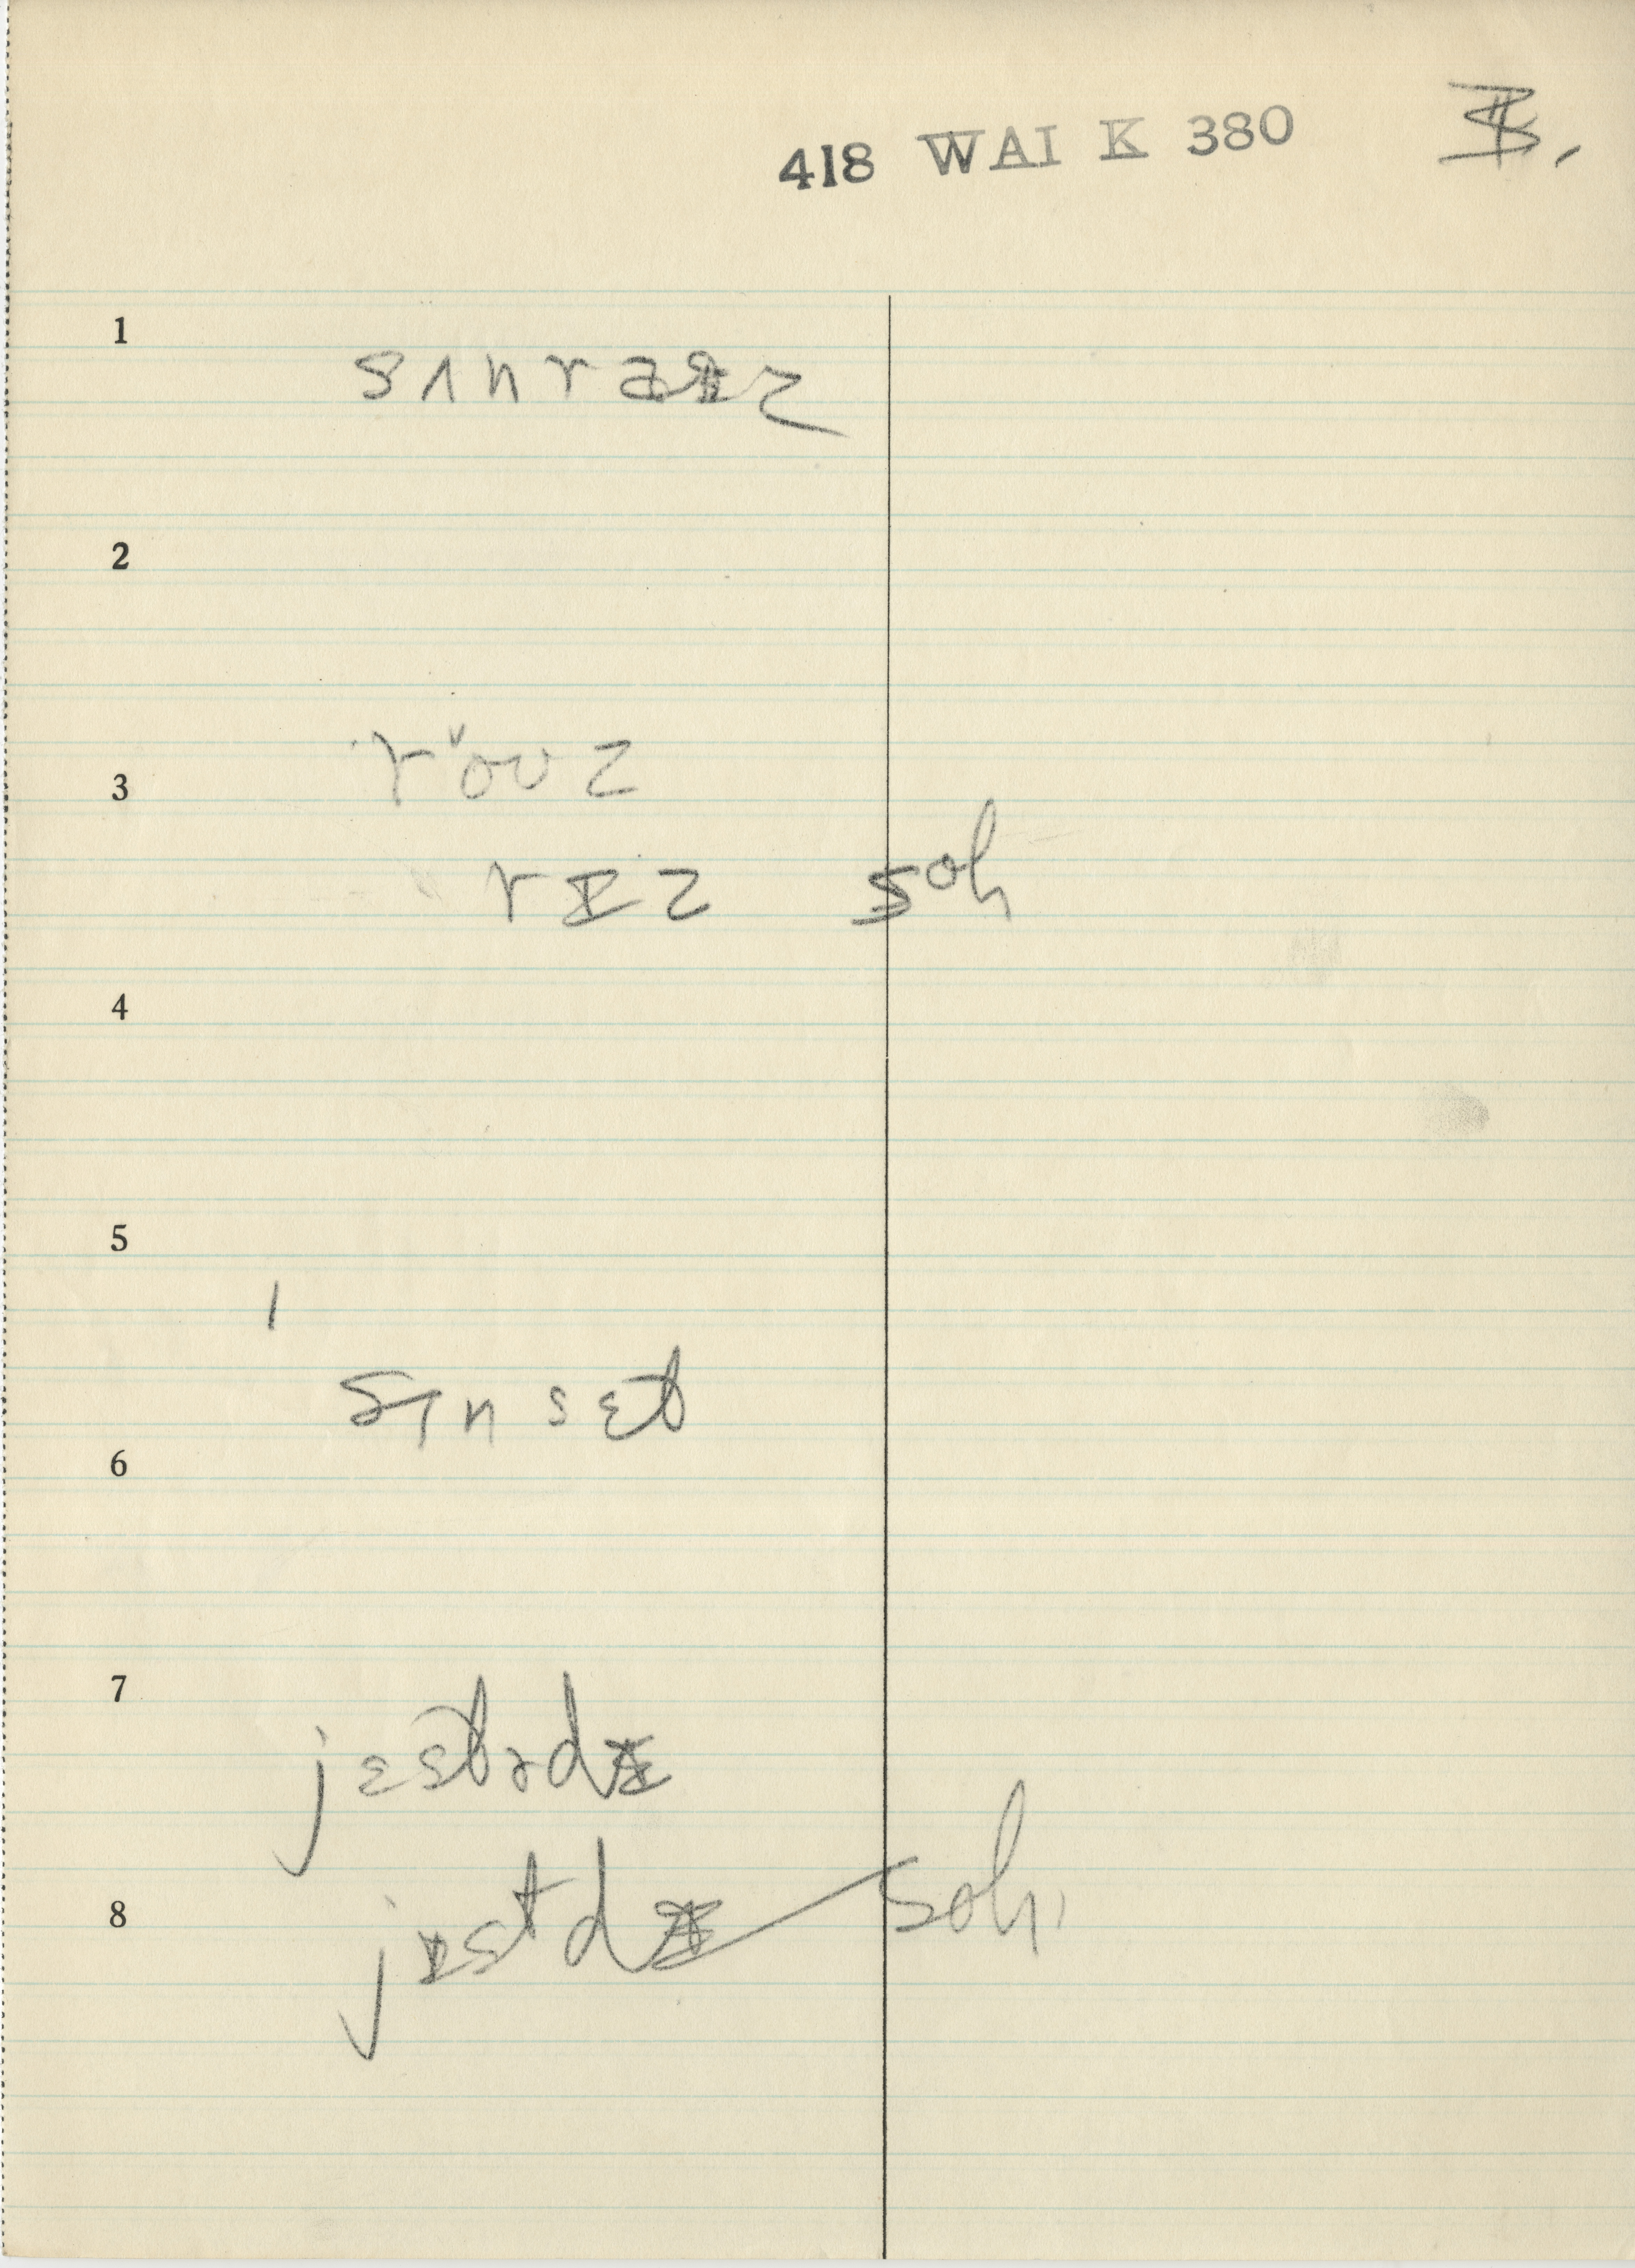 418 WAI K 380
1
sʌnraɪz
2
3
rˇoʊz
rɪz soh
4
5
sʌn sɛt
6
7
jɛstɚdɪ
8
jɪstdɪ soh,